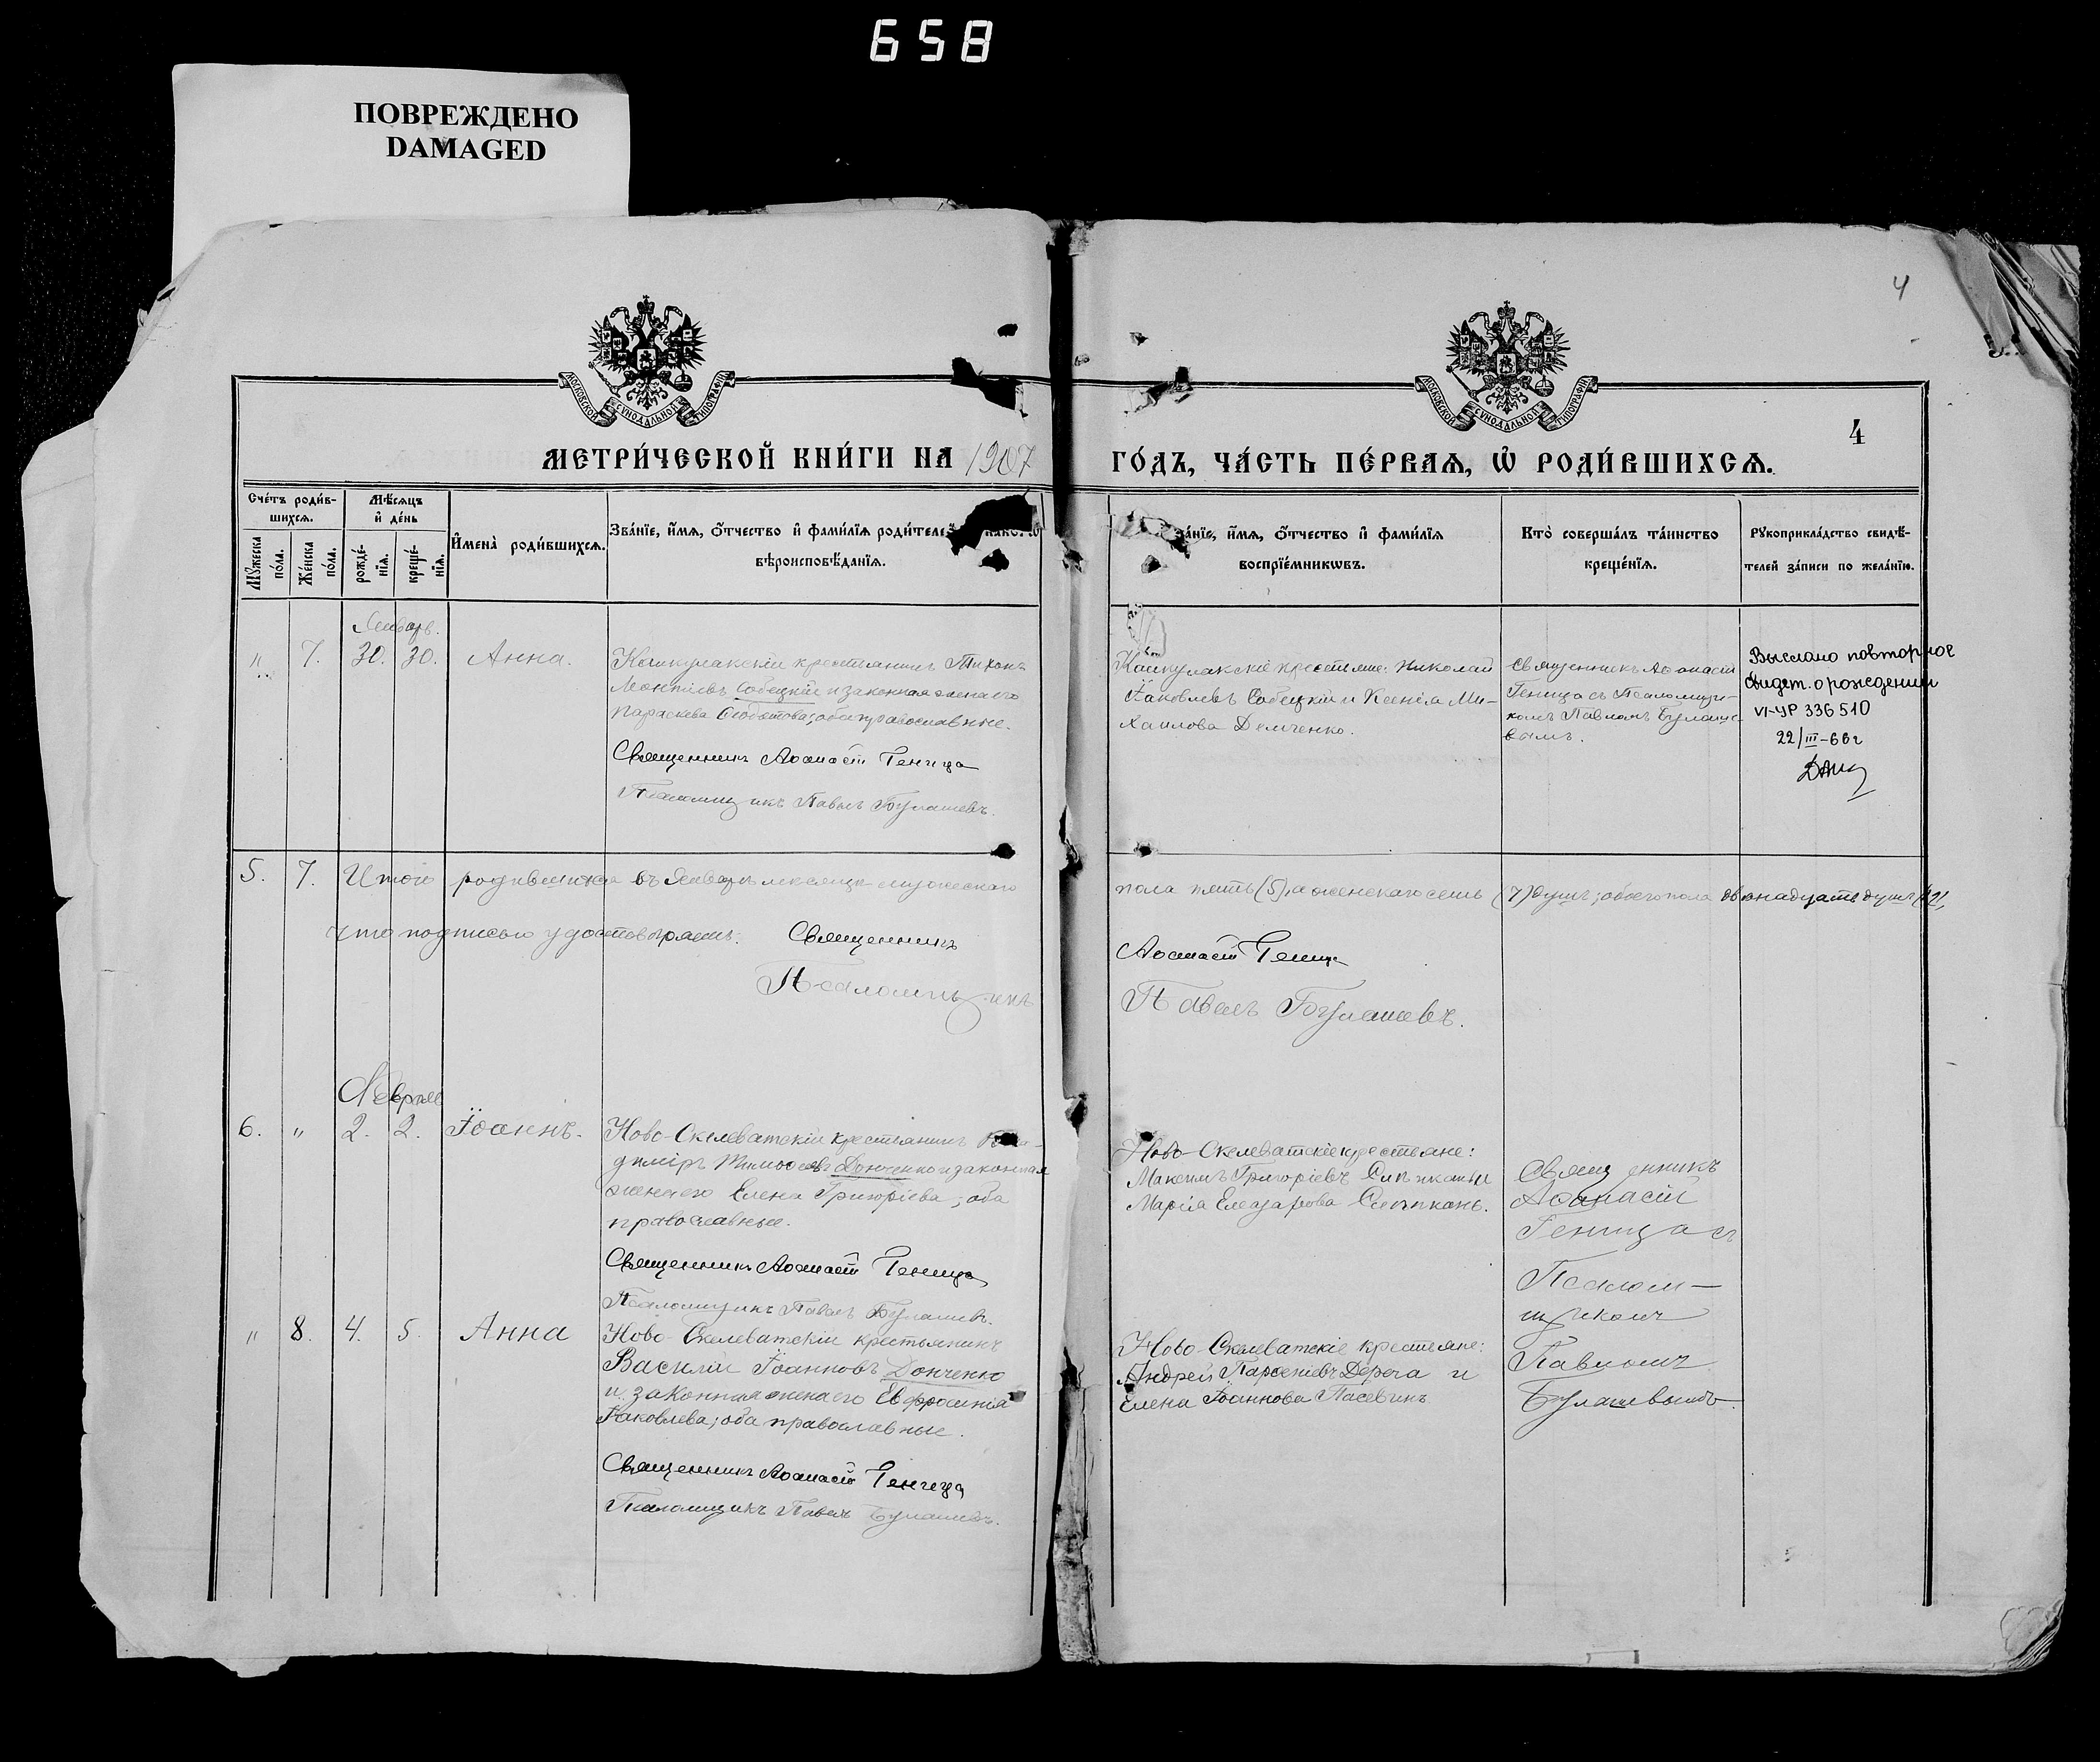 658
ПОВРЕЖДЕНО
DAMAGED
4
МОСКОВСКОЙ СУНОДАЛЬНОЙ ТИПОГРАФІИ
МОСКОВСКОЙ СУНОДАЛЬНОЙ ТИПОГРАФІИ
4
МЕТРИ́ЧЕСКОЙ КНИ́ГИ НА 1907 ГО́ДЪ, ЧА́СТЬ ПЕ́РВАѦ, Ѡ РОДИ́ВШИХСѦ.
Сче́тъ роди́в-
шихсѧ.
Мѣ́сѧцъ
и҆ де́нь
Мꙋ́жеска по́ла.
Же́нска по́ла.
рожде́-
нїѧ.
креще́-
нїѧ.
И҆мена̀ роди́вшихсѧ.
Зва́нїе, и҆́мѧ, ѻ҆́тчество и҆ фами́лїѧ роди́телей
вѣроисповѣ́данїѧ.
и҆́мѧ, ѻ҆́тчество и҆ фами́лїѧ
воспрїе́мникѡвъ.
Кто̀ соверша́лъ та́инство
креще́нїѧ.
Рꙋкоприкла́дство свидѣ́-
телей за́писи по жела́нїю.
Январь.
" 7. 30. 30. Анна.
Кошкулакскій крестьянинъ Тихонъ
Леонтіевъ Собецкій и законная жена его
Параскева Ѳедотова; оба православные.
Священникъ Аѳанасій Геница
Псаломщикъ Павелъ Булашевъ.
крестьяне: Николай
Іаковлевъ Собецкій и Ксенія Ми-
хаилова Демченко.
Священникъ Аѳанасій
Геница съ Псаломщи-
комъ Павломъ Булаше-
вымъ.
Выслано повторное
свидет. о рождении
VI-УР 336510
22/III-66 г
5. 7. Итого родившихся въ Январѣ месяце мужескаго пола пять (5), а женскаго семь (7) душъ; обоего пола двѣнадцать душъ (12),
что подписью удостовѣряемъ: Священникъ Аѳанасій Геница
Псаломщикъ Павелъ Булашевъ.
Февраль
6. " 2. 2. Іоаннъ.
Ново-Скелеватскій крестьянинъ Вла-
диміръ Тимоѳеевъ Донченко и законная
жена его Елена Григоріева; оба
православные.
Священникъ Аѳанасій Геница
Псаломщикъ Павелъ Булашевъ.
Ново-Скелеватскіе крестьяне:
Максимъ Григоріевъ и
Марія Елеазарова
Священникъ
Аѳанасій
Геница съ
Псалом-
щикомъ
Павломъ
Булашевымъ.
" 8. 4. 5. Анна
Ново-Скелеватскій крестьянинъ
Василій Іоанновъ Донченко
и законная жена его Евфросинія
Іаковлева; оба православные.
Священникъ Аѳанасій Геница
Псаломщикъ Павелъ Булашевъ.
Ново-Скелеватскіе крестьяне:
Андрей Парѳеніевъ Дереча и
Елена Іоаннова